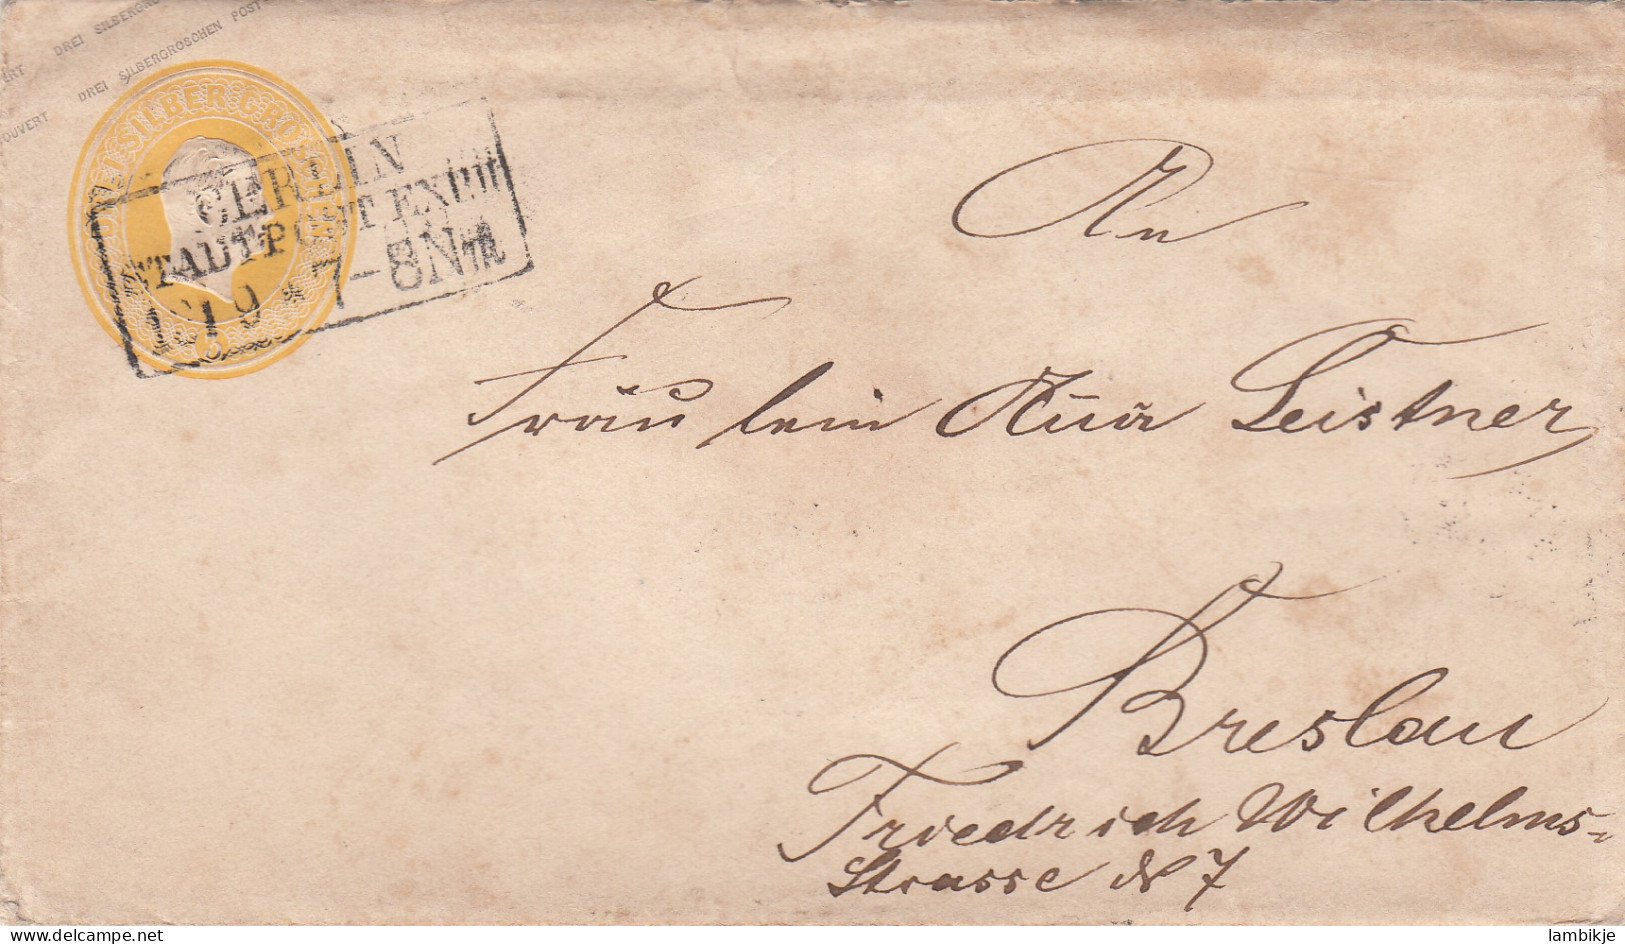 DREI SILBERGROSCHEN
DREI SILBERGROSCHEN POST
OUVERT
DREI SILBER GROSCHEN
3
BERLIN
STADTPOST EXPED
19 * 7-8 N
An
Fräulein Anna Leistner
Breslau
Friedrich Wilhelms-
Strasse № 7
www.delcampe.net
lambikje